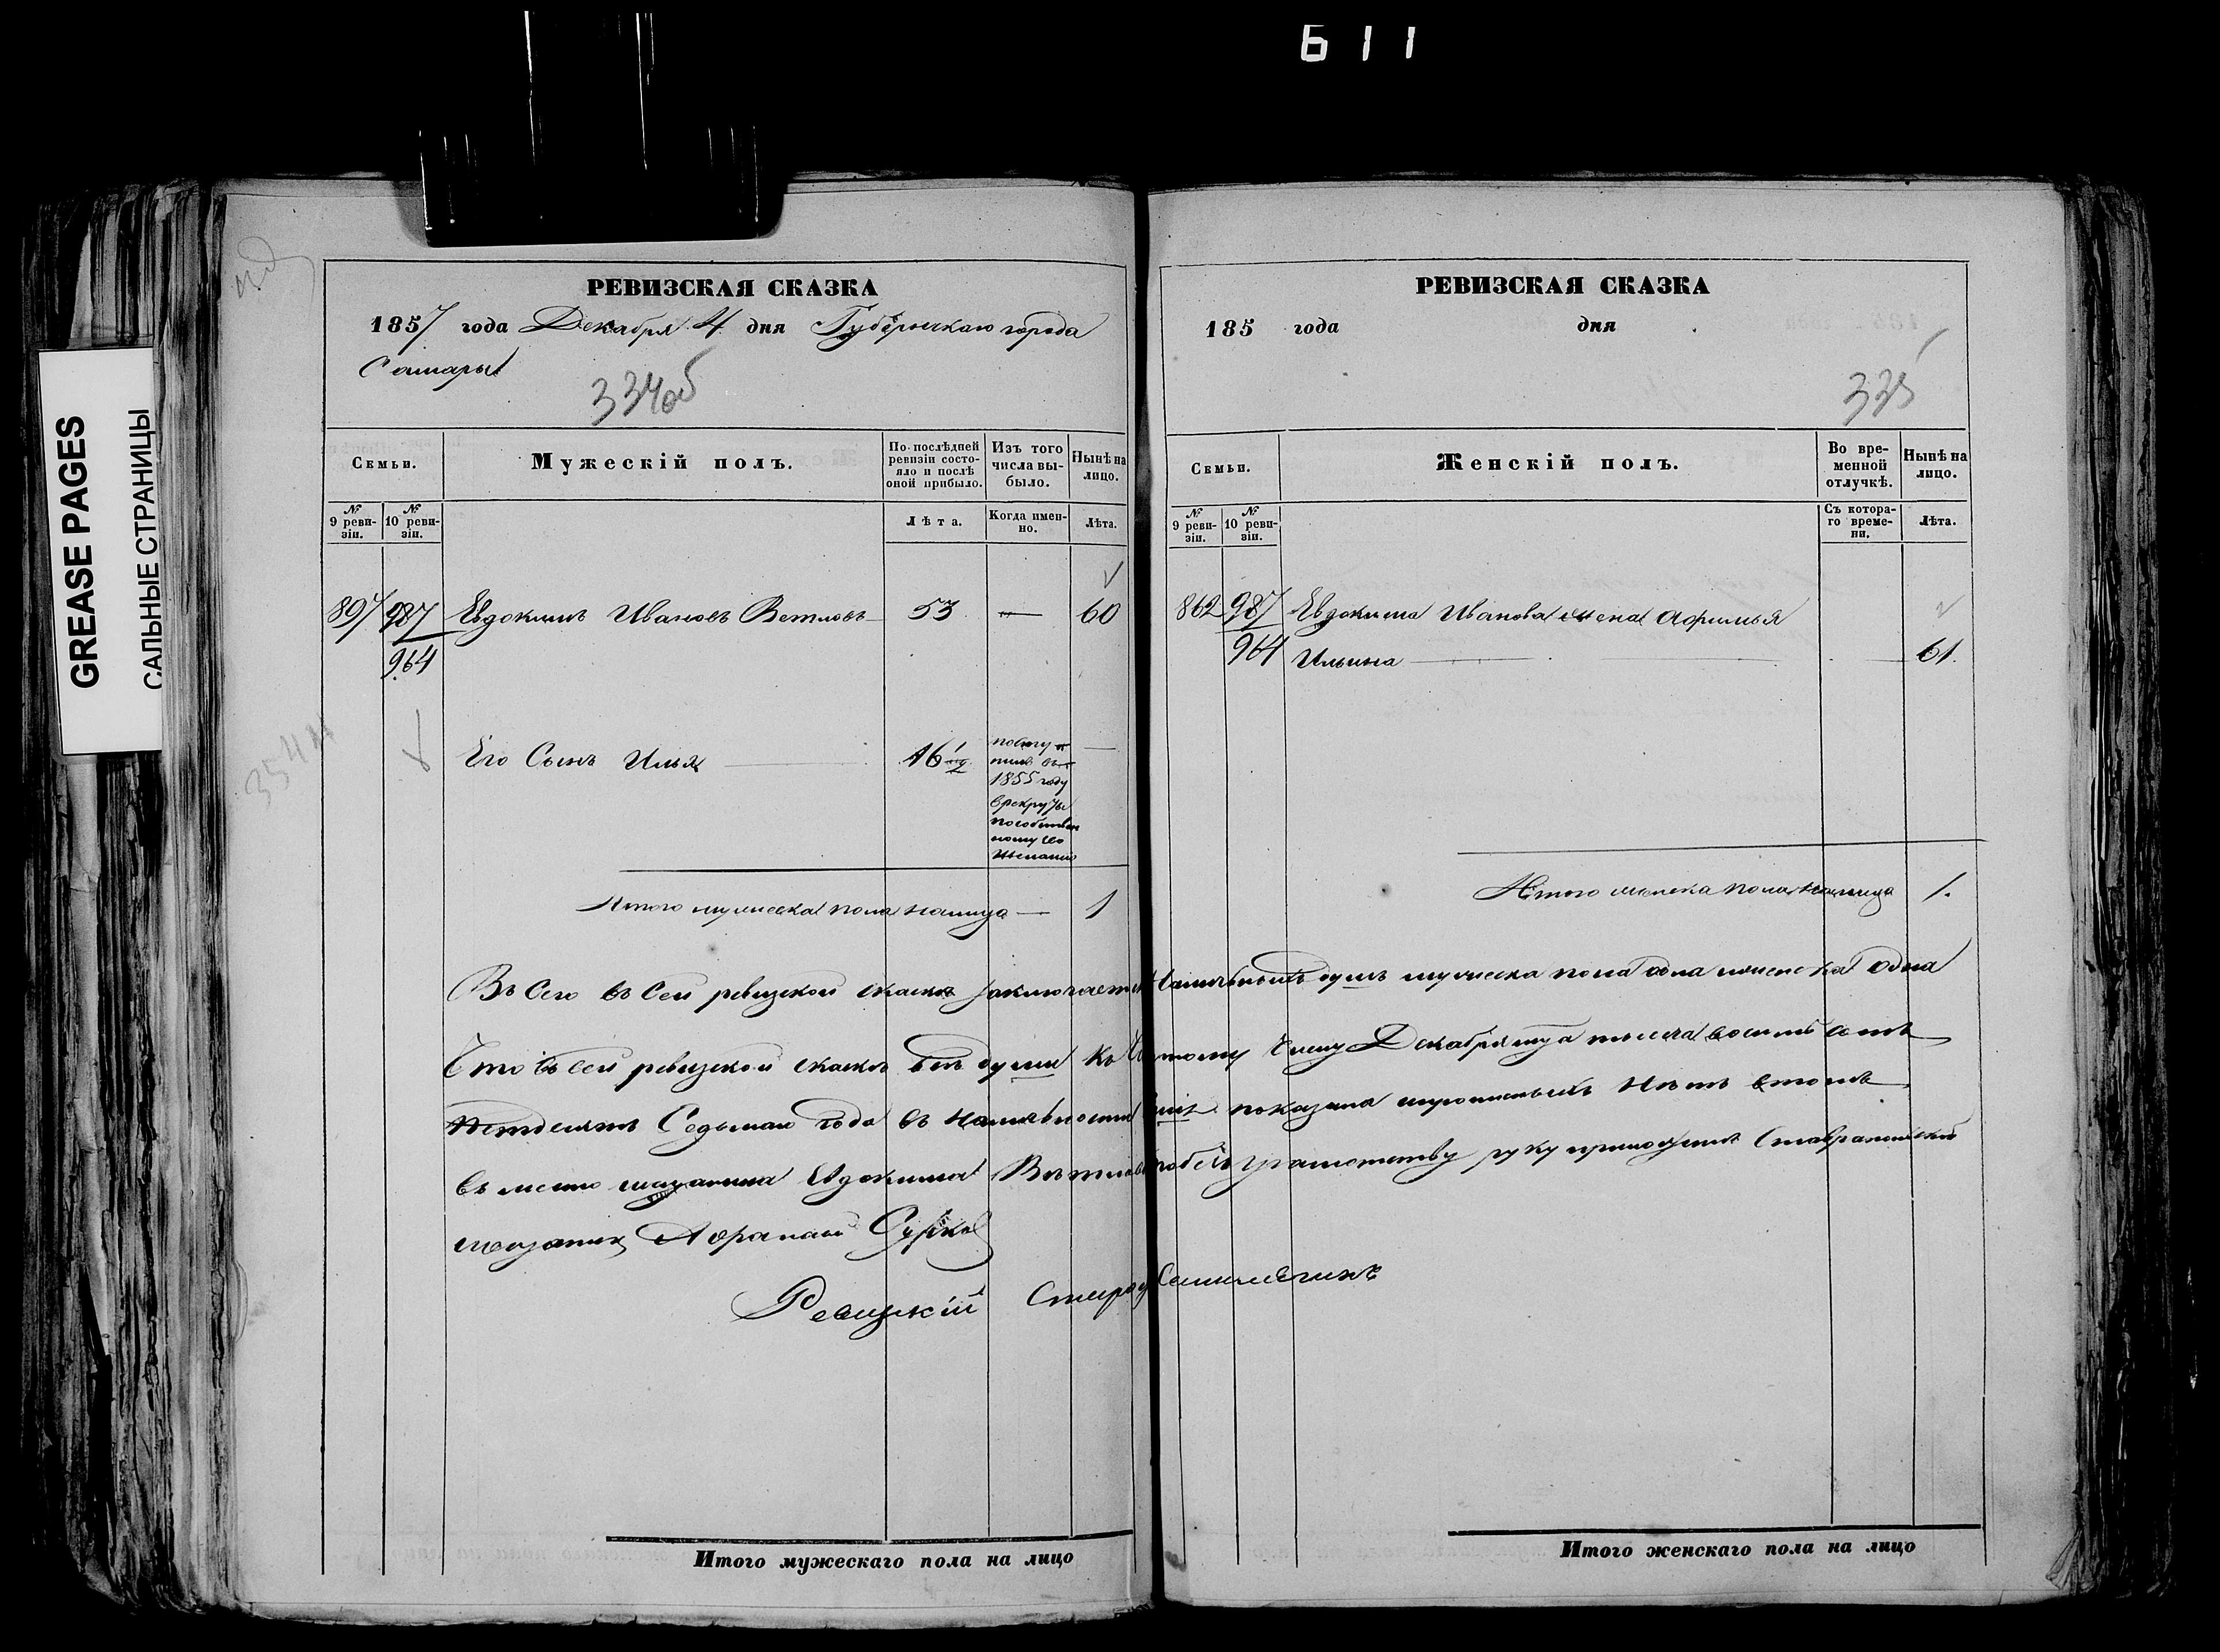 611
GREASE PAGES
САЛЬНЫЕ СТРАНИЦЫ
РЕВИЗСКАЯ СКАЗКА
1857 года Декабря 4 дня Губернскаго города
Самары
334об
Семьи.
Мужескій полъ.
По послѣдней ревизіи состояло и послѣ оной прибыло.
Изъ того числа выбыло.
Нынѣ на лицо.
№ 9 ревизіи.
№ 10 ревизіи.
Лѣта.
Когда именно.
Лѣта.
897 987 Евдокимъ Ивановъ Ветловъ 53 — 60
964
Его Сынъ Илья 16 1/2 —
1855 году
в рекруты
по собствен
ному его
желанію
Итого мужеска пола налицо — 1
РЕВИЗСКАЯ СКАЗКА
185 года дня
335
Семьи.
Женскій полъ.
Во временной отлучкѣ.
Нынѣ на лицо.
№ 9 ревизіи.
№ 10 ревизіи.
Съ котораго времени.
Лѣта.
862 987 Евдокима Иванова жена Афимья
964 Ильина 61.
Итого женска пола налицо 1.
Въ Сего въ Сей ревизской сказке заключается наличныхъ душъ мужеска пола одна женска одна
Что в сей ревизской сказке все души къ числу Декабря тысеча восемь сотъ
Петдесятъ Седьмаго года въ наличности показана прописныхъ Нѣтъ втомъ
въ место мещанина Евдокима Ветлова руку приложилъ Ставрапольской
мещанин Сурков
Ревизскій
Итого мужескаго пола на лицо
Итого женскаго пола на лицо